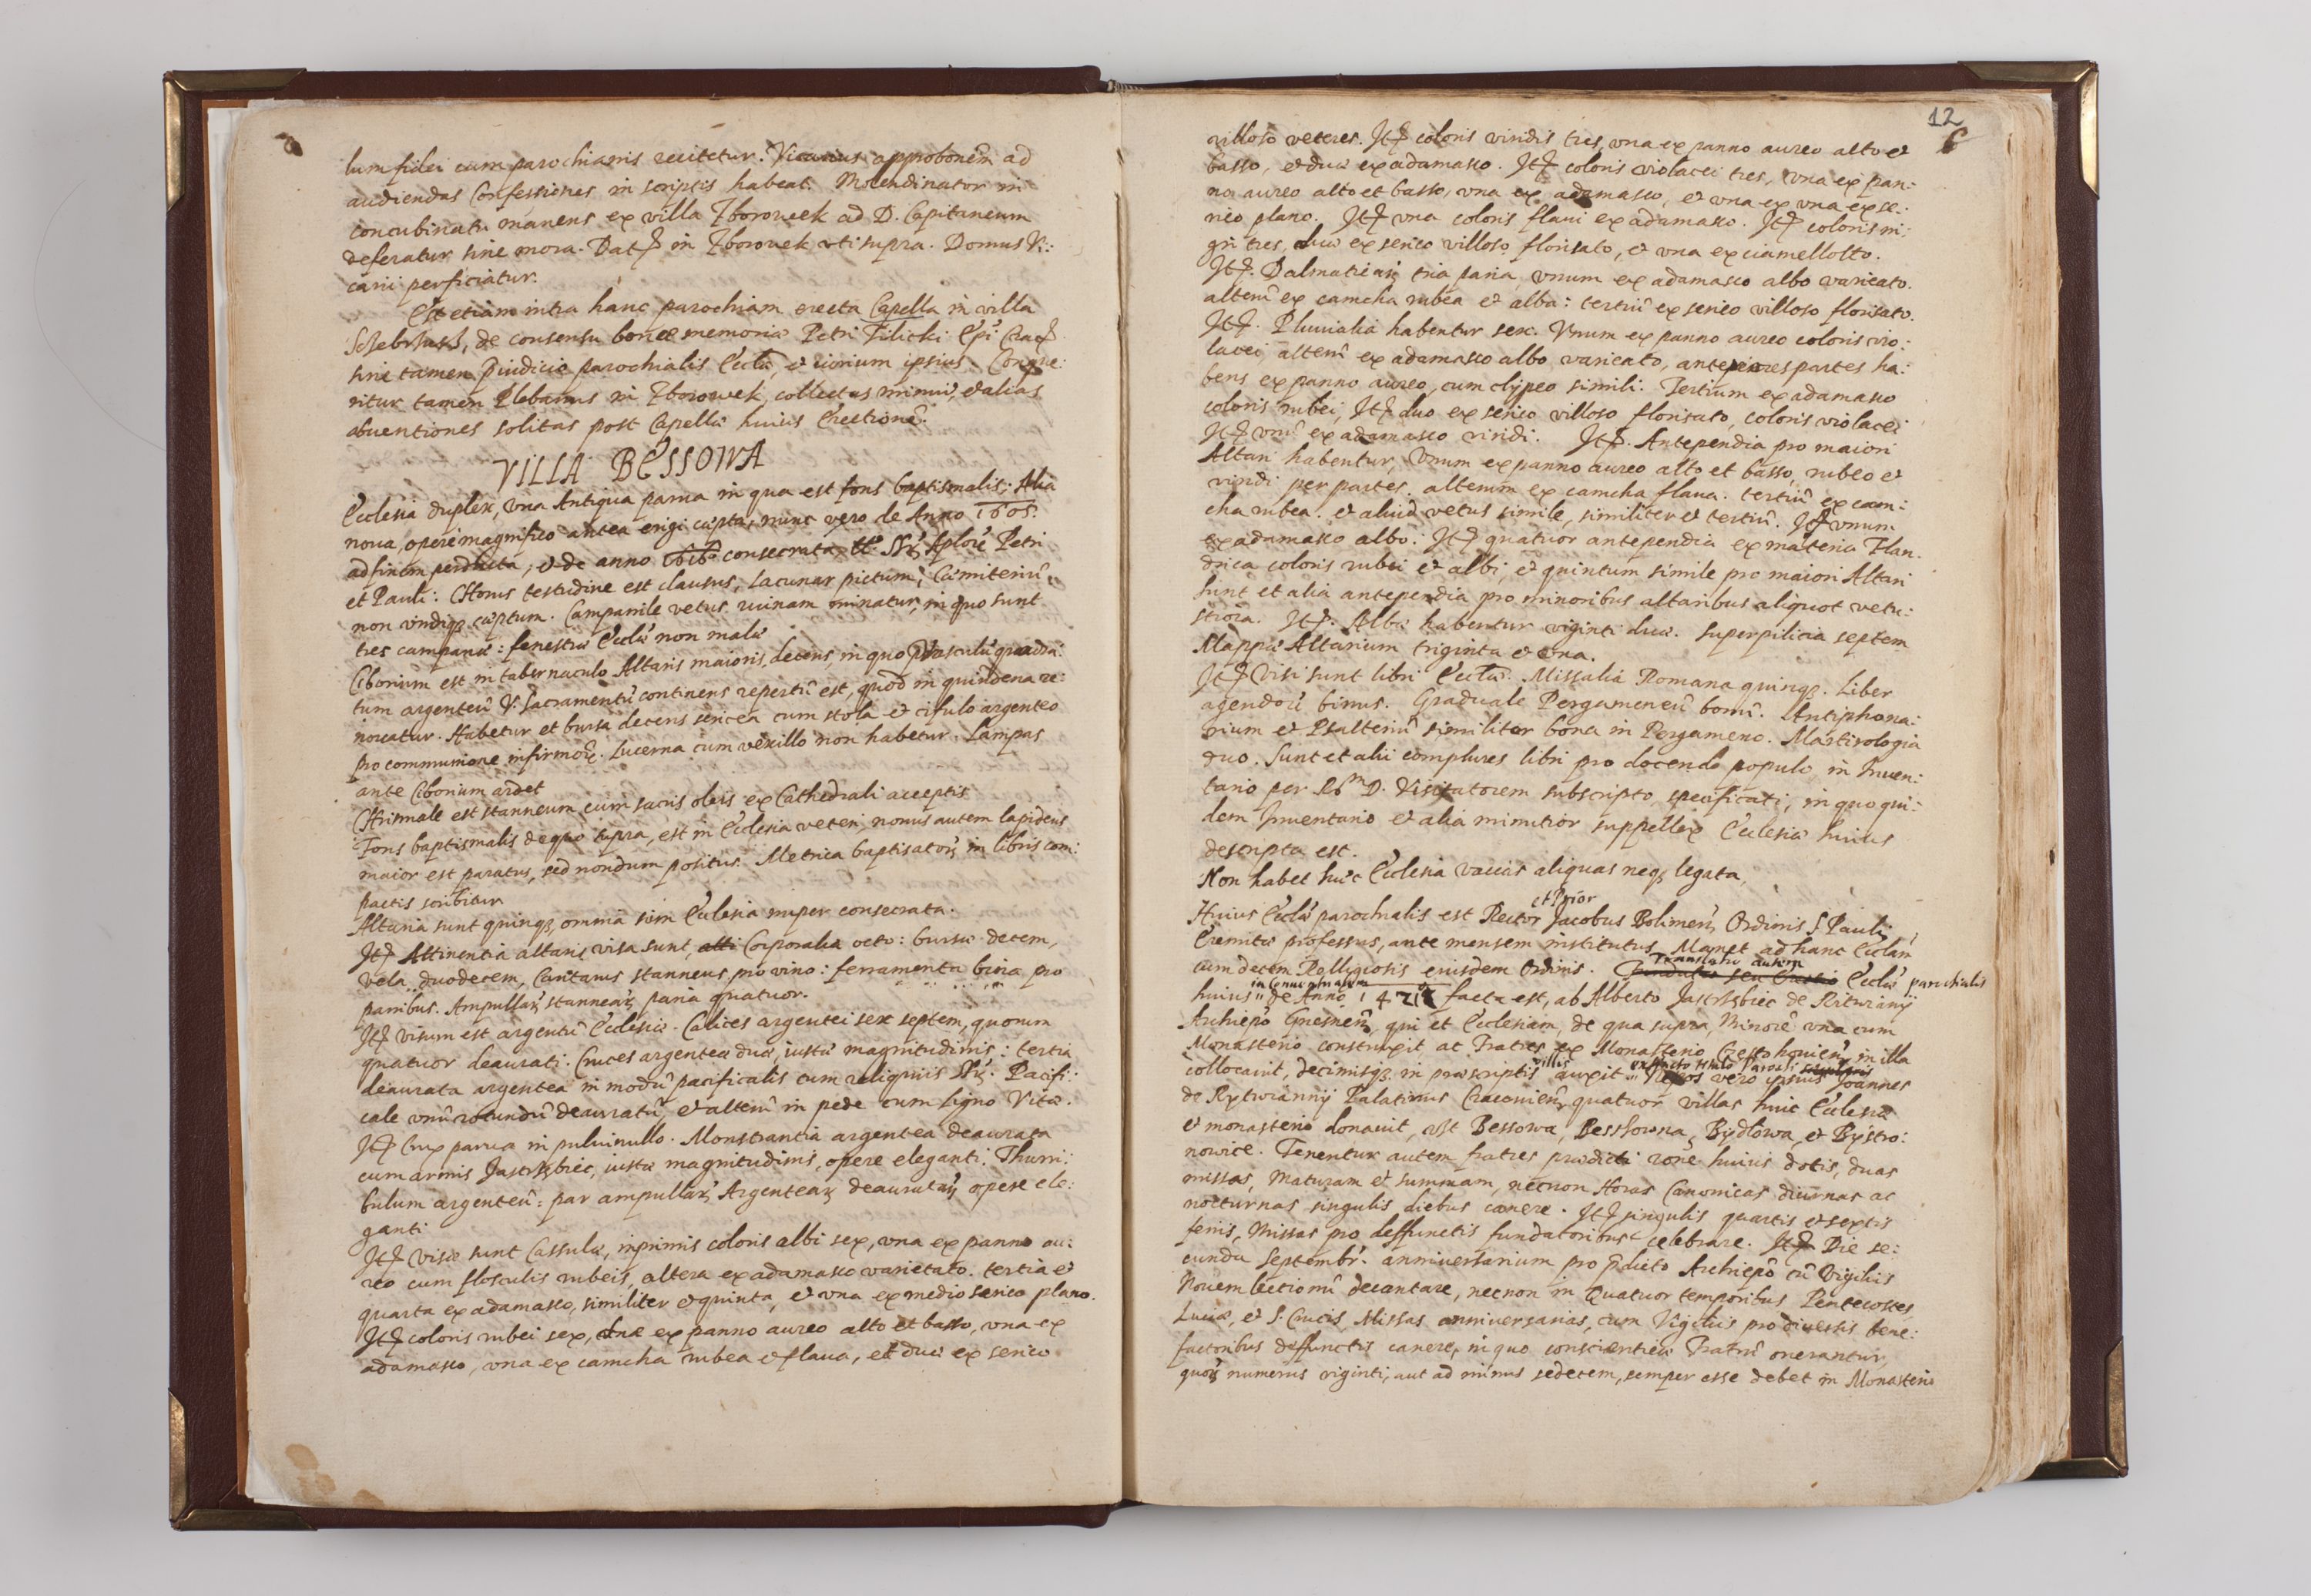 lum fidei cum parochianis recitetur. Vicarius approbonem̃ ad
audiendas Confessiones in scriptis habeat. Molendinator in
concubinatu manens ex villa Zborowek ad D. Capitaneum
deferatur sine mora. Dat in Zborowek uti supra. Domus Vi:
carii perficiatur.
Est etiam intra hanc parochiam erecta Capella in villa
de consensu bonæ memoriæ Petri Tilicki Epi Crac
sine tamen præiudicio parochialis Ecclæ, et iurium ipsius. Conque:
ritur tamen Plebanus in Zborowek, collectas minui, et alias
obuentiones solitas post Capellæ huius Erectionẽ.
VILLA BESSOWA
Ecclesia duplex, vna Antiqua parua in qua est fons baptismalis; Alia
noua, opere magnifico antea erigi cœpta, nunc vero de Anno 1605.
ad finem perducta; et de anno consecrata, tt. SS. Aplorũ Petri
et Pauli: Chorus testudine est clausus, lacunar pictum; Cœmiteriũ
non vndiq; cœptum. Campanile vetus ruinam minatur, in quo sunt
tres campanæ: fenestræ Ecclæ non malæ
Ciborium est in tabernaculo Altaris maioris, decens, in quo vasculũ quadda:
tum argenteũ V. Sacramentũ continens repertũ est, quod in quindena re:
nouatur. Habetur et bursa decens sericea cum stola et cifulo argenteo
pro communione infirmorũ. Lucerna cum vexillo non habetur. Lampas
ante Ciborium ardet
Chrismale est stanneum cum sacris oleis ex Cathedrali acceptis
Fons baptismalis de quo supra, est in Ecclesia veteri, nouus autem lapideus
maior est paratus, sed nondum positus. Metrica baptisatorũ in libris com:
pactis scribitur
Altaria sunt quinq; omnia sim Ecclesia nuper consecrata.
Itẽ Attinentia altaris visa sunt, alti Corporalia octo: bursæ decem,
vela duodecem, Cantarus stanneus pro vino: ferramenta bina pro
panibus. Ampullarũ stannearũ paria quatuor.
Itẽ visum est argentũ Ecclesiæ. Calices argentei sex septem, quorum
quatuor deaurati: Cruces argenteæ duæ, iustæ magnitudinis: tertia
deaurata argentea in modũ pacificalis cum reliquiis SS. Pacifi:
cale vnũ rotundũ deauratũ, et alterũ in pede cum ligno Vitæ.
Itẽ Crux parua in puluinullo. Monstrantia argentea deaurata
cum armis Jastrzbiec, iustæ magnitudinis, opere eleganti. Thuri:
bulum argenteũ: par ampullarũ Argentearũ deauratarũ opere ele:
ganti
Itẽ visæ sunt Cassulæ, inprimis coloris albi sex, vna ex panno au:
reo cum flosculis rubeis, altera ex adamasco varietato. tertia et
quarta ex adamasco, similiter et quinta, et vna ex medio serico plano.
Itẽ coloris rubei sex, duæ ex panno aureo alto et basso, vna ex
adamasco, vna ex camcha rubea et flaua, et duæ ex serico
12
villoso veteres. Itẽ coloris viridis tres, vna ex panno aureo alto et
basso, et duæ ex adamasco. Itẽ coloris violacei tres, vna ex pan:
no aureo alto et basso, vna ex adamasco, et vna ex vna ex se:
rico plano. Itẽ vna coloris flaui ex adamasco. Itẽ coloris ni:
gri tres, duæ ex serico villoso florisato, et vna ex ciamellotto.
Itẽ. Dalmaticarũ tria paria, vnum ex adamasco albo varicato.
alterũ ex camcha rubea et alba: tertiũ ex serico villoso florisato.
Itẽ. Pluuialia habentur sex. Vnum ex panno aureo coloris vio:
lacei, alterũ ex adamasco albo varicato, anteriores partes ha:
bens ex panno aureo, cum clypeo simili: Tertium ex adamasco
coloris rubei, Itẽ duo ex serico villoso florisato, coloris violacei
Itẽ vnũ ex adamasco viridi. Itẽ. Antependia pro maiori
Altari habentur, Vnum ex panno aureo alto et basso, rubeo et
viridi per partes. alterum ex camcha flaua. tertiũ ex cam:
cha rubea. et aliud vetus simile, similiter et tertiũ. Itẽ vnum
ex adamasco albo. Itẽ quatuor antependia ex materia Flan:
drica coloris rubei et albi, et quintum simile pro maiori Altari
sunt et alia antependia pro minoribus altaribus aliquot vetu:
stiora. Itẽ. Albæ habentur viginti duæ. superpilicia septem
Mappæ Altarium triginta et vna.
Itẽ Visi sunt libri Ecclæ. Missalia Romana quinq;. Liber
agendorũ binus. Graduale Pergameneũ bonũ. Antiphona:
rium et Psalteriũ similiter bona in Pergameno. Martirologia
duo. Sunt et alii complures libri pro docendo populo in Inuen:
tario per Rdm D. Visitatorem subscripto, specificati, in quo qui:
dem Inuentario et alia minutior suppellex Ecclesiæ huius
descripta est.
Non habet hæc Ecclesia vaccas aliquas neq; legata,
et Prior
Huius Ecclæ parochialis est Rector Jacobus Bolimens Ordinis S. Pauli
Eremitæ professus, ante mensem institutus, Manet ad hanc Ecclam
cum decem Relligiosis eiusdem Ordinis. Translatio autem Fundatio seu Ecclæ parochialis
huius in Conuentualem de Anno 1421 facta est, ab Alberto Jastrzbiec de Ritwiany
Archiepo Gnesnen, qui et Ecclesiam, de qua supra, Minorẽ vna cum
Monasterio construxit ac Fratres ex Monasterio Czestochouien in illa
collocauit, decimisq; in præscriptis villis auxit. Nepos vero ipsius Joannes
de Rytwianny Palatinus Cracouien, quatuor villas huic Ecclesiæ
et monasterio donauit, vt Bessowa, Besshowna, Bydlowa, et Bystro:
nowice. Tenentur autem fratres prædicti rone huius dotis, duas
missas, Maturam et Summam, necnon Horas Canonicas diurnas ac
nocturnas singulis diebus canere. Itẽ singulis quartis et sextis
feriis, Missas pro deffunctis fundatoribus celebrare. Itẽ Die se:
cunda Septembr. anniuersarium pro p̃dicto Archiepõ cũ Vigiliis
Nouem lectionũ decantare, necnon in Quatuor temporibus Pentecostes,
Luciæ, et S. Crucis, Missas anniuersarias, cum Vigiliis pro diuersis bene:
factoribus deffunctis canere, in quo conscientiæ Fratrũ onerantur,
quorũ numerus viginti, aut ad minus sedecem, semper esse debet in Monasterio